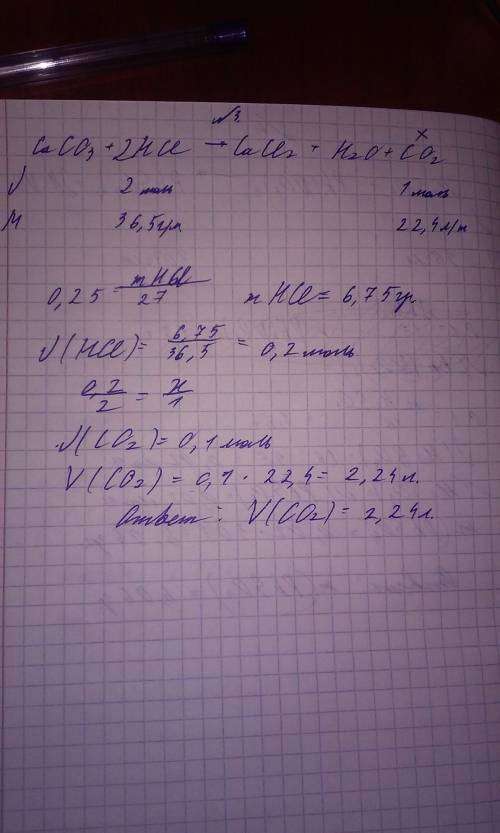 №3.
CaCO₃ + 2HCl → CaCl₂ + H₂O + CO₂
x
ν 2 моль 1 моль
M 36,5гр/м 22,4 л/м
0,25 = mHCl/27 mHCl = 6,75гр
ν(HCl) = 6,75/36,5 = 0,2 моль
0,2/2 = x/1
ν(CO₂) = 0,1 моль
V(CO₂) = 0,1 · 22,4 = 2,24 л.
Ответ: V(CO₂) = 2,24 л.